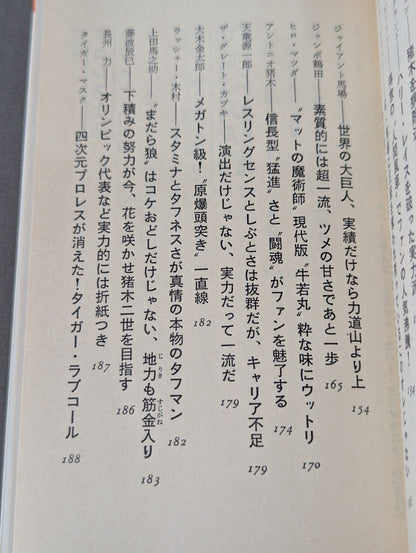 ジャイアント馬場——世界の大巨人、実績だけなら力道山より上 154
ジャンボ鶴田——素質的には超一流、ツメの甘さであと一歩 165
ヒロ・マツダ——〝マットの魔術師〟現代版〝牛若丸〟粋な味にウットリ 170
アントニオ猪木——信長型〝猛進〟さと〝闘魂〟がファンを魅了する 174
天竜源一郎——レスリングセンスとしぶとさは抜群だが、キャリア不足 179
ザ・グレート・カブキ——演出だけじゃない、実力だって一流だ 179
大木金太郎——メガトン級!〝原爆頭突き〟一直線 182
ラッシャー・木村——スタミナとタフネスさが真情の本物のタフマン 182
上田馬之助——〝まだら狼〟はコケおどしだけじゃない、地力も筋金入り 183
じりき
すじがね
藤波辰巳——下積みの努力が今、花を咲かせ猪木二世を目指す 186
長州 力——オリンピック代表など実力的には折紙つき 187
タイガー・マスク——四次元プロレスが消えた!タイガー・ラブコール 188